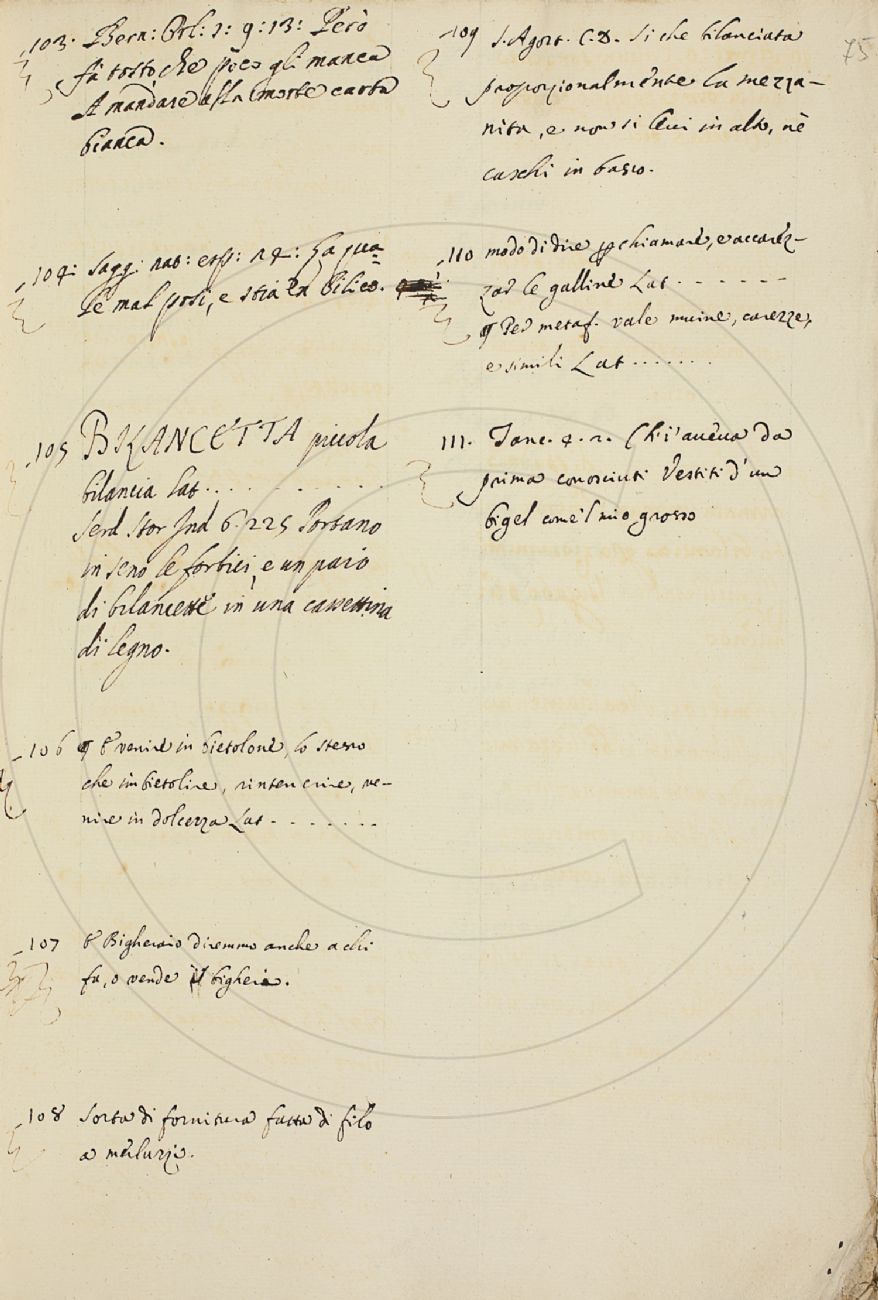 75
103. Bern: Orl: 2: 9: 13: Però
fà tosto, che poco gli manca
A mandare alla morte carta
bianca.
104. Sagg. nat: esp: 14: La qua=
le mal posi, e stia in bilico.
105 BILANCETTA piccola
bilancia Lat. . . . . . . . . . .
Serd. Stor Ind 6. 225 Portano
in seno le forbici, e un paio
di bilancette in una cassettina
di legno.
106 ¶ E venire in bietolone, lo stesso
che imbietolire, rintenerire, ve-
nire in dolcezza Lat - . . . . . .
107 E Bigheraio diremmo anche a chi
fa, o vende il bigheri.
108 Sorta di fornitura fatta di filo
a merluzzi.
109 S. Agost. C. D. Si che bilanciata
proporzionalmente la mezza-
nità, e non si levi in alto, nè
caschi in basso.
110 modo di dire p chiamare, e accarez-
zar le galline Lat. - - - - - -
¶ Per metaf. vale muine, carezze,
e simili Lat . . . . . . .
111. Tanc. 4. 2. Ch'i' aveva da
prima conosciuti Vestiti d'un
bigel com'è 'l mio grosso